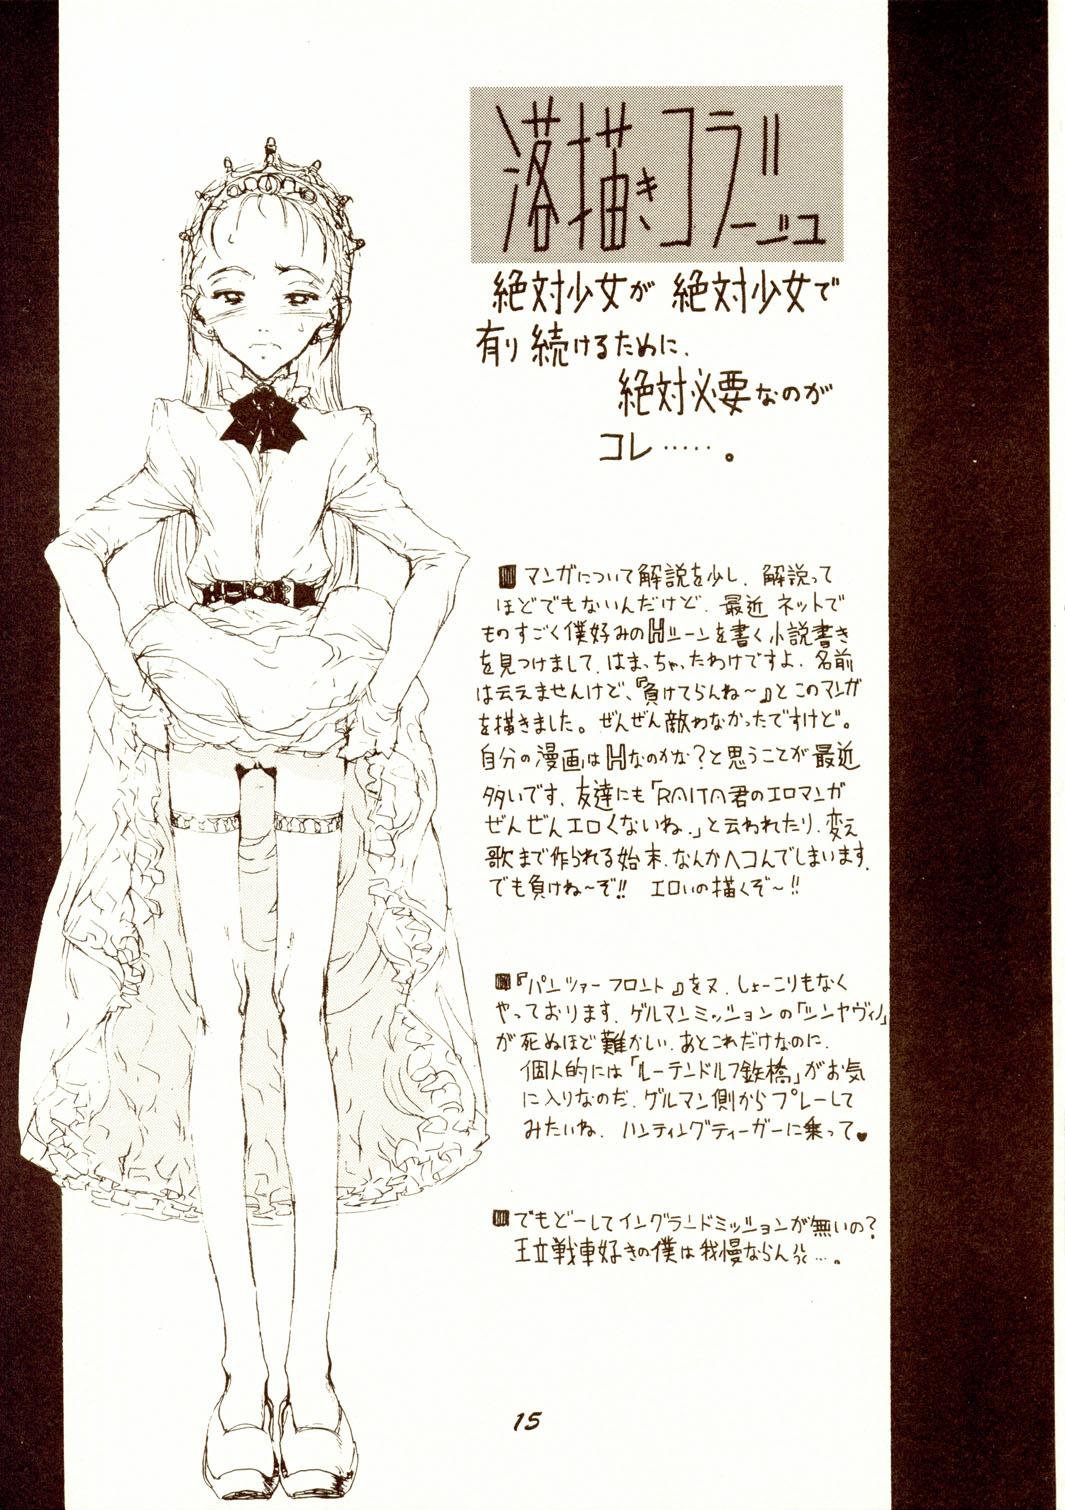 落描きコラージュ
絶対少女が 絶対少女で
有り続けるために、
絶対必要なのが
コレ……。
マンガについて解説を少し、解説って
ほどでもないんだけど、最近 ネットで
ものすごく僕好みのHシーンを書く小説書き
を見つけまして、はまっちゃったわけですよ、名前
は云えませんけど、『負けてらんね～』とこのマンガ
を描きました。ぜんぜん敵わなかったですけど。
自分の漫画はHなのかな？と思うことが最近
多いです、友達にも「RAITA君のエロマンガ
ぜんぜんエロくないね.」と云われたり、変え
歌まで作られる始末、なんかヘコんでしまいます、
でも負けね～ぞ!! エロいの描くぞ～!!
『パンツァーフロント』をヌ、しょーこりもなく
やっております、ゲルマンミッションの「シンヤヴィノ」
が死ぬほど難かしい、あとこれだけなのに、
個人的には「ルーテンドルフ鉄橋」がお気
に入りなのだ、ゲルマン側からプレーして
みたいね、ハンティングティーガーに乗って♥
でもどーしてイングランドミッションが無いの？
王立戦車好きの僕は我慢ならん…。
15